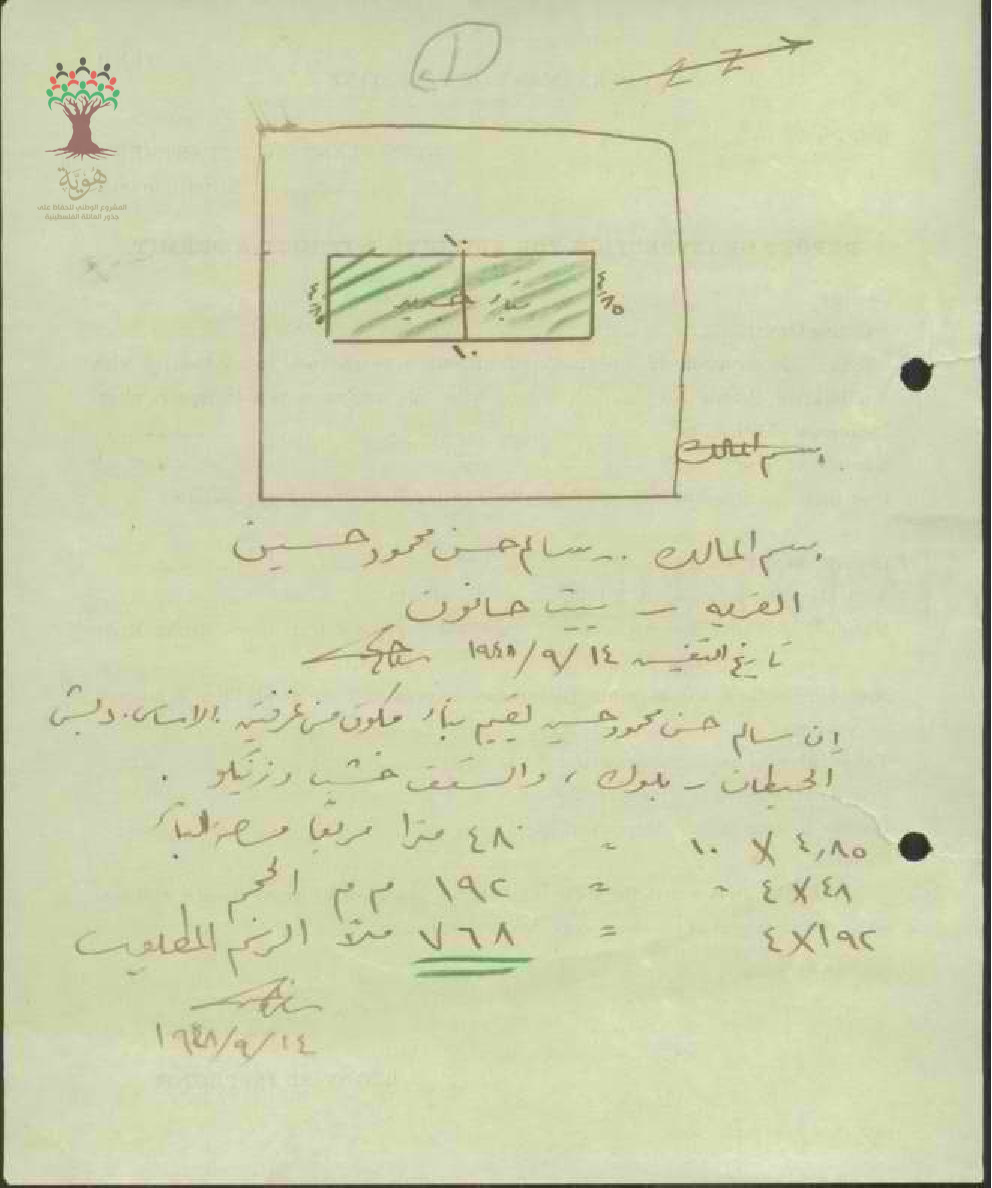 هُويَّة
المشروع الوطني للحفاظ على
جذور العائلة الفلسطينية
١٠
٤٫٨٥
بناء جديد
٤٫٨٥
١٠
بسم المالك
بسم المالك .. سالم حسن محمود حسين
القريه - بيت حانون
تاريخ التفتيش ١٩٤٨/٩/١٤
إن سالم حسن محمود حسين يقيم بناء مكون من غرفتين . الاساس . دبش
الحيطان - بلوك ، والسقف خشب وزنكو .
٤٫٨٥ X ١٠ = ٤٨٠ مترا مربعا مسطح البناء
٤٨ X ٤ = ١٩٢ م م الحجم
١٩٢ X ٤ = ٧٦٨ ملاً الرسم المطلوب
١٩٤٨/٩/١٤